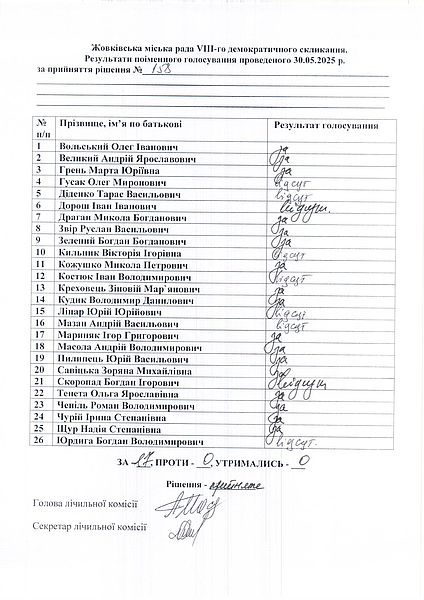 Жовківська міська рада VIII-го демократичного скликання.
Результати поіменного голосування проведеного 30.05.2025 р.
за прийняття рішення № 158
№ п/п Прізвище, ім’я по батькові Результат голосування
1 Вольський Олег Іванович за
2 Великий Андрій Ярославович за
3 Грень Марта Юріївна за
4 Гусак Олег Миронович відсут
5 Діденко Тарас Васильович відсут
6 Дорош Іван Іванович відсут.
7 Драган Микола Богданович за
8 Звір Руслан Васильович за
9 Зелений Богдан Богданович за
10 Кильник Вікторія Ігорівна відсут
11 Кожушко Микола Петрович за
12 Костюк Іван Володимирович відсут
13 Креховець Зіновій Мар`янович за
14 Кудик Володимир Данилович за
15 Лінар Юрій Юрійович відсут
16 Мазан Андрій Васильович відсут
17 Мариняк Ігор Григорович за
18 Масола Андрій Володимирович за
19 Пилипець Юрій Васильович за
20 Савіцька Зоряна Михайлівна за
21 Скоропад Богдан Ігорович відсут
22 Тенета Ольга Ярославівна за
23 Чепіль Роман Володимирович за
24 Чурій Ірина Степанівна за
25 Щур Надія Степанівна за
26 Юрдига Богдан Володимирович відсут.
ЗА 17, ПРОТИ - 0, УТРИМАЛИСЬ - 0
Рішення - прийняте
Голова лічильної комісії
Секретар лічильної комісії